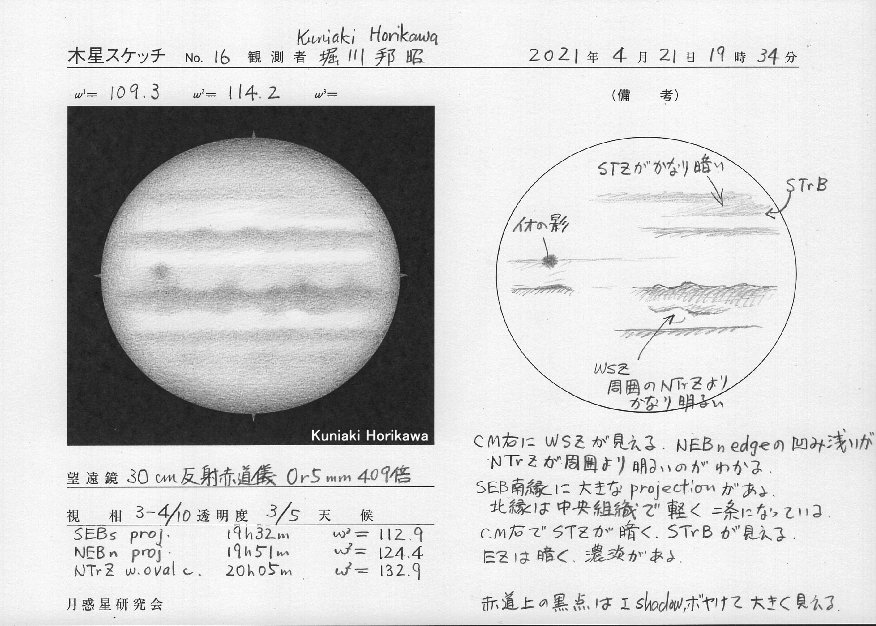 Kuniaki Horikawa
木星スケッチ No. 16 観測者 堀川邦昭 2021年 4月 21日 19時 34分
ω¹= 109.3 ω²= 114.2 ω³=
(備 考)
STZがかなり暗い
STrB
イオの影
WSZ
周囲のNTrZより
かなり明るい
Kuniaki Horikawa
CM右にWSZが見える. NEBn edgeの凹み浅いが
NTrZが周囲より明るいのがわかる.
SEB南縁に大きなprojectionがある.
北縁は中央組織で軽く二条になっている.
CM右でSTZが暗く. STrBが見える.
EZは暗く. 濃淡がある.
赤道上の黒点はI shadow.ボヤけて大きく見える.
望遠鏡 30cm反射赤道儀 Or5mm 409倍
視 相 3-4/10 透明度 3/5 天 候
SEBs proj. 19h32m ω²= 112.9
NEBn proj. 19h51m ω²= 124.4
NTrZ w.oval c. 20h05m ω²= 132.9
月惑星研究会